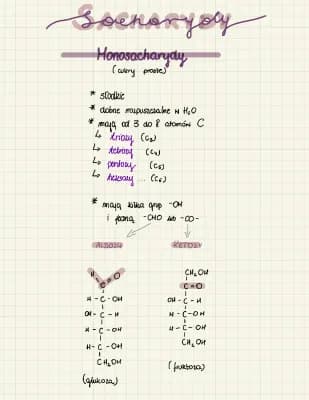 Sacharydy
Monosacharydy
(cukry proste)
* słodkie
* dobrze rozpuszczalne w H₂O
* mają od 3 do 8 atomów C
↳ triozy (C₃)
↳ tetrozy (C₄)
↳ pentozy (C₅)
↳ heksozy ... (C₆)
* mają kilka grup -OH
i jedną -CHO lub -CO-
ALDOZY KETOZY
H O
C
H - C - OH
OH - C - H
H - C - OH
H - C - OH
CH₂OH
(glukoza)
CH₂OH
C = O
OH - C - H
H - C - OH
H - C - OH
CH₂OH
(fruktoza)